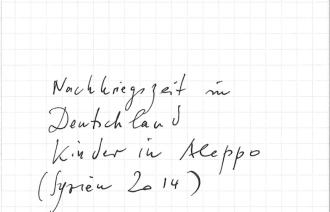 Nachkriegszeit in
Deutschland
Kinder in Aleppo
(Syrien 2014)